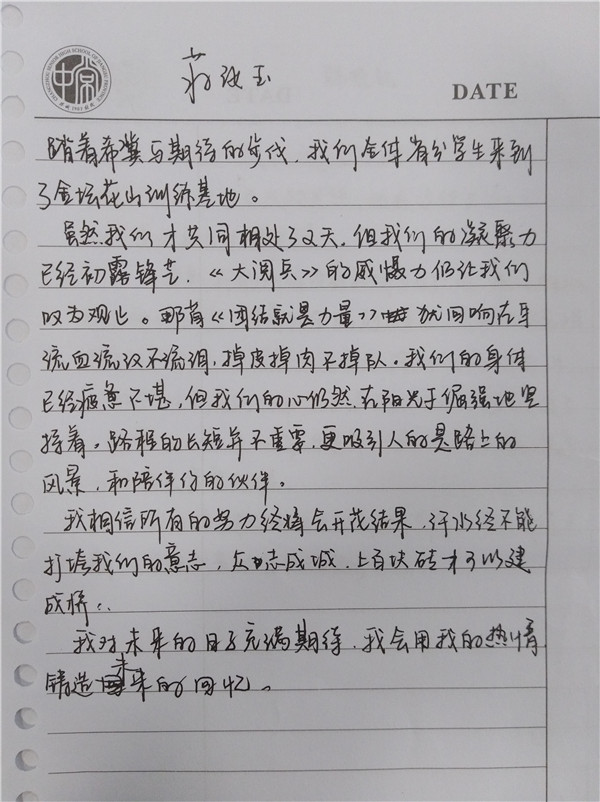 蒋
玉
DATE
踏着希冀与期待的步伐，我们全体省分学生来到
了金坛花山训练基地。
虽然我们才共同相处了2天，但我们的凝聚力
已经初露锋芒，《大阅兵》的威慑力仍让我们
叹为观止。那首《团结就是力量》犹回响在耳
流血流汗不流泪，掉皮掉肉不掉队。我们的身体
已经疲惫不堪，但我们的心仍然在阳光下倔强地坚
持着。路程的长短并不重要，更吸引人的是路上的
风景，和陪伴你的伙伴。
我相信所有的努力终将会开花结果，汗水终不能
打垮我们的意志，众志成城，上百块砖才可以建
成桥..
我对未来的日子充满期待，我会用我的热情
铸造未来的回忆。